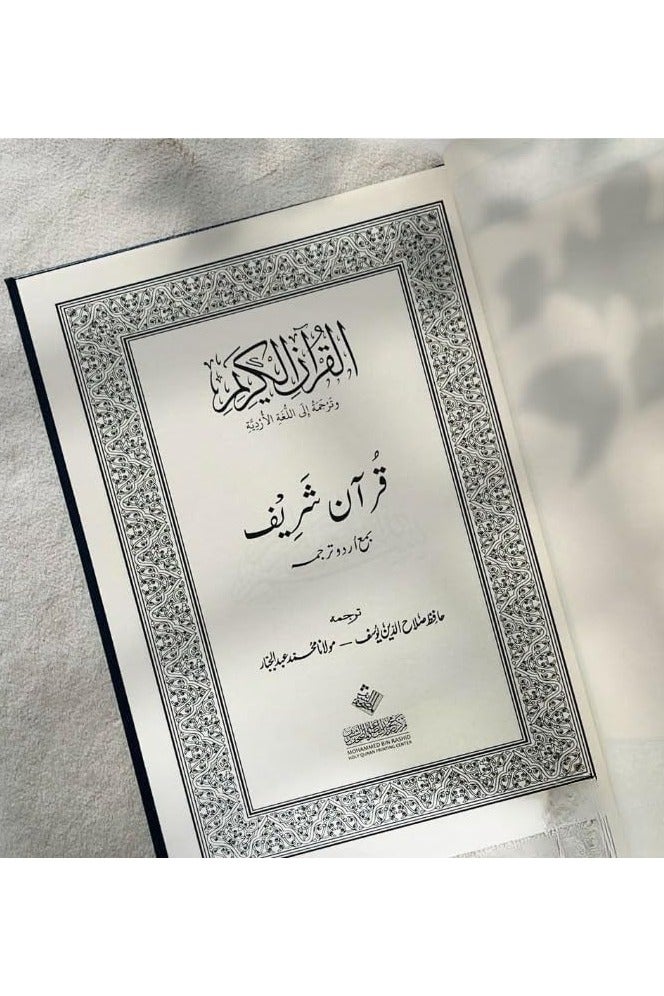 القرآن الكريم
وَتَرْجَمَةٌ إِلَى اللُّغَةِ الأُرْدِيَّةِ
قُرآن شَرِیْف
بمع اردو ترجمہ
ترجمہ
حافظ صلاح الدین یوسف – مولانا محمد عبد الجبار
MOHAMMED BIN RASHID
HOLY QURAN PRINTING CENTER